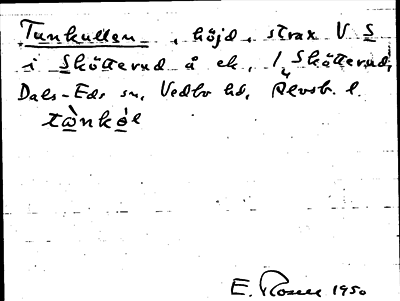 Tunkullen, höjd, strax V S
i Skötterud å ek, 1/4 Skötterud,
Dals-Eds sn, Vedbo hd, Älvsb. l.
tὼnkὼl
E. Rosell 1950